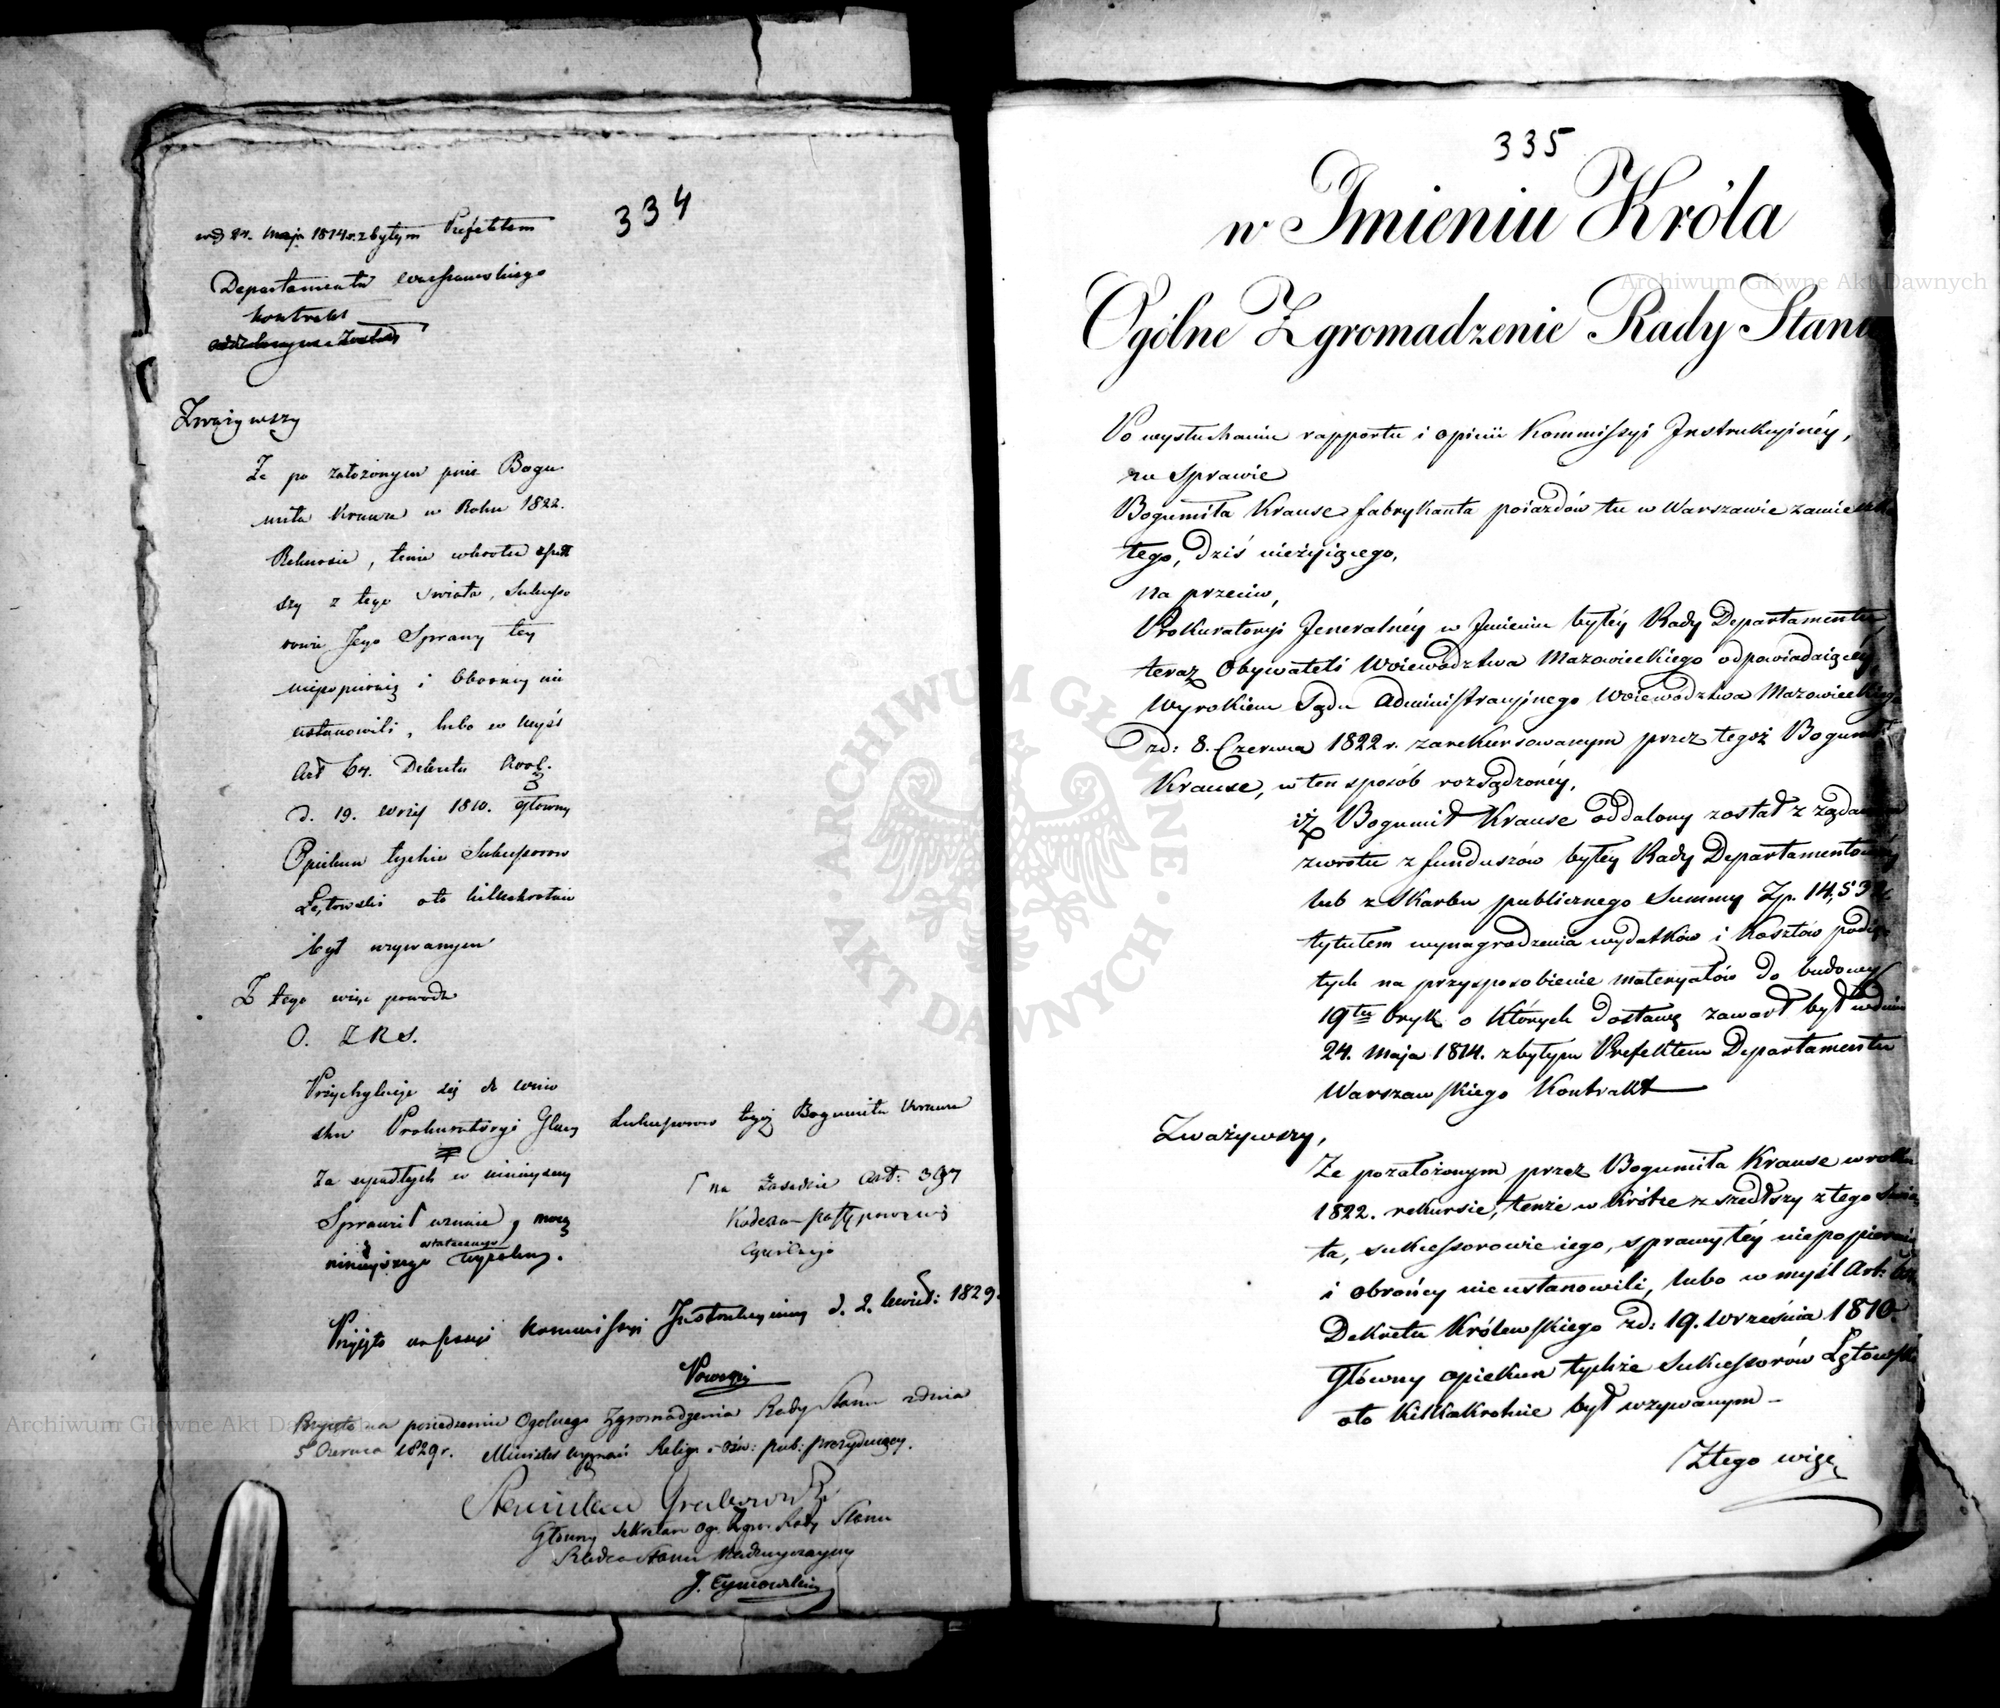 334
wd 24. Maja 1814 r. z byłym Prefektem
Departamentu Warszawskiego
kontrakt
Zważywszy
Że po założonym przez Bogu
miła Krause w Roku 1822.
Rekursie, tenże wkrótce zszedł
szy z tego świata, Sukcesso
rowie Jego Sprawy tey
niepopieraią i Obrońcy nie
ustanowili, lubo w myśl
Art 64. Dekretu Król.
d. 19. Wrześ 1810. główny
Opiekun tychże Sukcessorow
Łętowski oto kilkakrotnie
był wzywanym
Z tego więc powodu
O. Z R S.
Przychylaiąc się do wnio
sku Prokuratoryi Glney Sukcessorow tegoż Bogumiła Krause
za upadłych w ninieyszey
Sprawie uznaie, mocą
ninieyszego ostatecznego wyroku.
na zasadzie Art: 397
Kodexu postępowania
Cywilnego
Przyięto na sessyi Kommissyi Instrukcyiney d. 2. Kwiet: 1829.
Przyięto na posiedzeniu Ogólnego Zgromadzenia Rady Stanu z dnia
5 Czerwca 1829 r. Minister Wyznań Relig: i Ośw: pub: prezyduiący.
Stanisław Grabowski
Główny Sekretarz Og. Zgr. Rady Stanu
Radca Stanu Nadzwyczayny
J. Tymowski
335
w Imieniu Króla
Ogólne Zgromadzenie Rady Stanu
Po wysłuchaniu rapportu i opinii Kommissyi Instrukcyinéy,
w sprawie
Bogumiła Krause fabrykanta poiazdów tu w Warszawie zamieszka
łego, dziś nieżyiącego,
na przeciw,
Prokuratoryi Jeneralnéy w Imieniu byłéy Rady Departamentu,
teraz Obywateli Woiewództwa Mazowieckiego odpowiadaiącéy,
Wyrokiem Sądu Administracyjnego Woiewództwa Mazowieckiego
zd: 8. Czerwca 1822 r. zarekursowanym przez tegoż Bogumiła
Krause, w ten sposób rozsądzonéy,
iż Bogumił Krause oddalony został z żądaniem
zwrotu z funduszów byłéy Rady Departamentowéy
lub z Skarbu publicznego Summy Zp. 14,532,
tytułem wynagrodzenia wydatków i kosztów podię
tych na przysposobienie materyałów do budowy
19tu bryk o których dostawę zawart był w dniu
24. Maja 1814. z byłym Prefektem Departamentu
Warszawskiego Kontrakt
Zważywszy,
Że po założonym przez Bogumiła Krause w roku
1822. rekursie, tenże w krótce zszedłszy z tego świa
ta, sukcessorowie iego, sprawy téy niepopieraią
i obrońcy nie ustanowili, lubo w myśl Art: 64.
Dekretu Królewskiego zd: 19. Września 1810.
Główny opiekun tychże Sukcessorów Łętowski
oto kilkakrotnie był wzywanym –
Z tego więc
Archiwum Główne Akt Dawnych
Archiwum Główne Akt Dawnych
ARCHIWUM GŁÓWNE AKT DAWNYCH